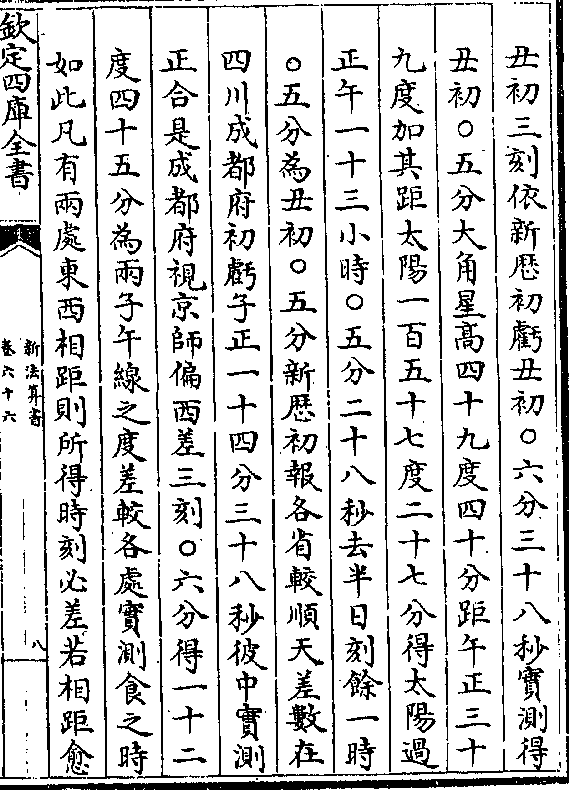 丑初三刻依新厯初虧丑初○六分三十八秒實測得
丑初○五分大角星高四十九度四十分距午正三十
九度加其距太陽一百五十七度二十七分得太陽過
正午一十三小時○五分二十八秒去半日刻餘一時
○五分為丑初○五分新厯初報各省較順天差數在
四川成都府初虧子正一十四分三十八秒彼中實測
正合是成都府視京師偏西差三刻○六分得一十二
度四十五分為兩子午線之度差較各處實測食之時
如此凡有兩處東西相距則所得時刻必差若相距愈
欽定四庫全書
新法算書
卷六十六
八